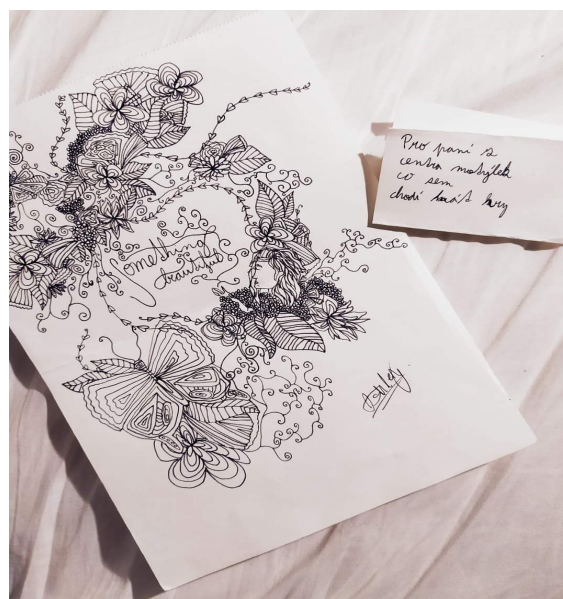 something
beautiful
Ashley
Pro paní z
centra motýlek
co sem
chodí hrát hry